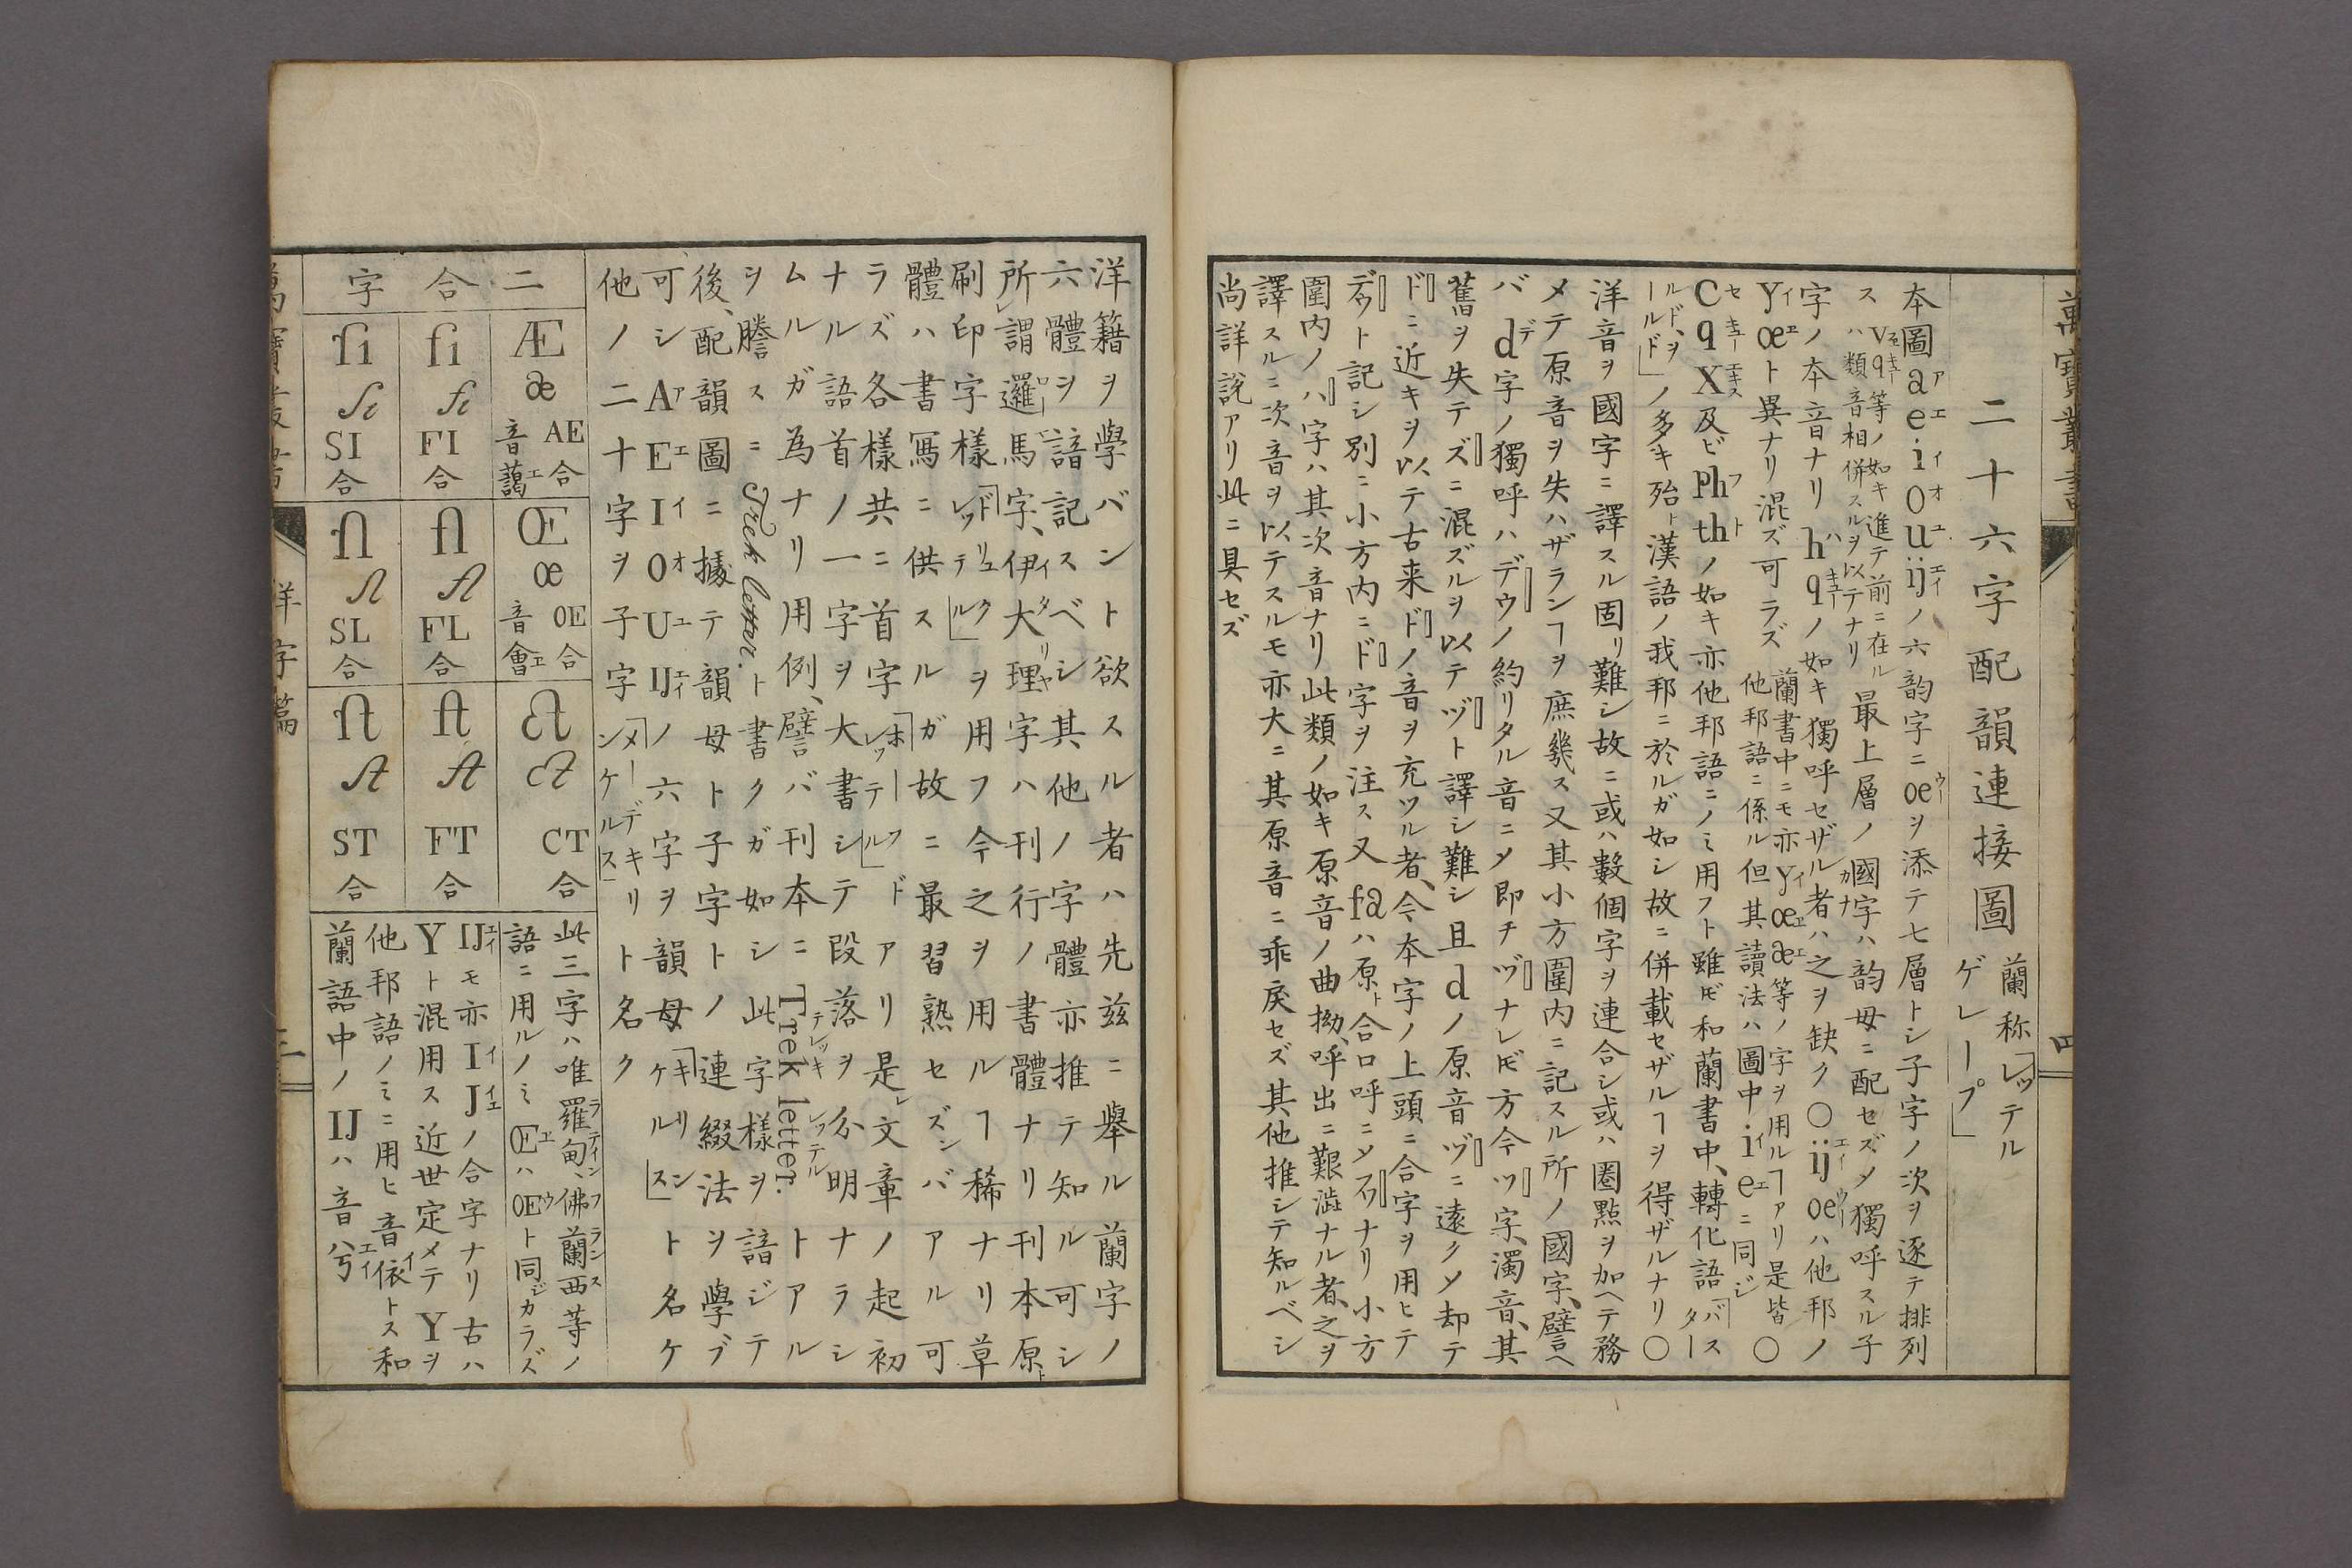 萬寶叢書
四
二十六字配韻連接圖 蘭称「レッテル
ゲレープ」
本圖a e i o u ijノ六韵字ニoeヲ添テ七層トシ子字ノ次ヲ逐テ排列
ス v q等ノ如キ進テ前ニ在ルハ類音相併スルヲ以テナリ 最上層ノ國字ハ韵母ニ配セズメ獨呼スル子
字ノ本音ナリ h qノ如キ獨呼セザル者ハ之ヲ缺ク〇ij oeハ他邦ノ
Y œト異ナリ混ズ可ラズ 蘭書中ニモ亦y œ æ等ノ字ヲ用ルヿアリ是皆他邦語ニ係ル但其讀法ハ圖中i eニ同ジ 〇
C q X及ビPh thノ如キ亦他邦語ニノミ用フト雖𪜈和蘭書中、轉化語「バスター
ルド、ヲールド」ノ多キ殆ト漢語ノ我邦ニ於ルガ如シ故ニ併載セザルヿヲ得ザルナリ〇
洋音ヲ國字ニ譯スル固リ難シ故ニ或ハ數個字ヲ連合シ或ハ圏點ヲ加ヘテ務
メテ原音ヲ失ハザランヿヲ庶幾ス又其小方圍内ニ記スル所ノ國字、譬ヘ
バd字ノ獨呼ハデウノ約リタル音ニメ即チヅナレ𪜈方今ツ字、濁音、其
舊ヲ失テズニ混ズルヲ以テヅト譯シ難シ且dノ原音ヅニ遠クメ却テ
ドニ近キヲ以テ古来ドノ音ヲ充ツル者、今本字ノ上頭ニ合字ヲ用ヒテ
デウト記シ別ニ小方内ニド字ヲ注ス又faハ原ト合口呼ニメフアナリ小方
圍内ノハ字ハ其次音ナリ此類ノ如キ原音ノ曲拗、呼出ニ艱澁ナル者、之ヲ
譯スルニ次音ヲ以テスルモ亦大ニ其原音ニ乖戾セズ其他推シテ知ルベシ
尚詳說アリ此ニ具セズ
洋籍ヲ學バント欲スル者ハ先兹ニ舉ル蘭字ノ
六體ヲ諳記スベシ其他ノ字體亦推テ知ル可シ
所謂邏馬字、伊大理字ハ刊行ノ書體ナリ刊本原ト
刷印字樣「ドリュクレッテル」ヲ用フ今之ヲ用ルヿ稀ナリ草
體ハ書寫ニ供スルガ故ニ最習熟セズンバアル可
ラズ各樣共ニ首字「ホーフドレッテル」アリ是レ文章ノ起初
ナル語首ノ一字ヲ大書シテ段落ヲ分明ナラシ
ムルガ為ナリ用例、譬バ刊本ニTrek letter.トアル
ヲ謄スニTrek letter.ト書クガ如シ此字樣ヲ諳ジテ
後、配韻圖ニ據テ韻母ト子字トノ連綴法ヲ學ブ
可シA E I O U IJノ六字ヲ韻母「キリンケルス」ト名ケ
他ノ二十字ヲ子字「メーデキリンケルス」ト名ク
二合字
Æ æ AE合 音藹
Œ œ OE合 音會
ct ct CT合
fi fi FI合
fl fl FL合
ft ft FT合
ſi ſi SI合
ſl ſl SL合
ſt ſt ST合
此三字ハ唯羅甸、佛蘭西等ノ
語ニ用ルノミŒハOEト同ジカラズ
IJモ亦I Jノ合字ナリ古ハ
Yト混用ス近世定メテYヲ
他邦語ノミニ用ヒ音依トス和
蘭語中ノIJハ音
洋字篇
三